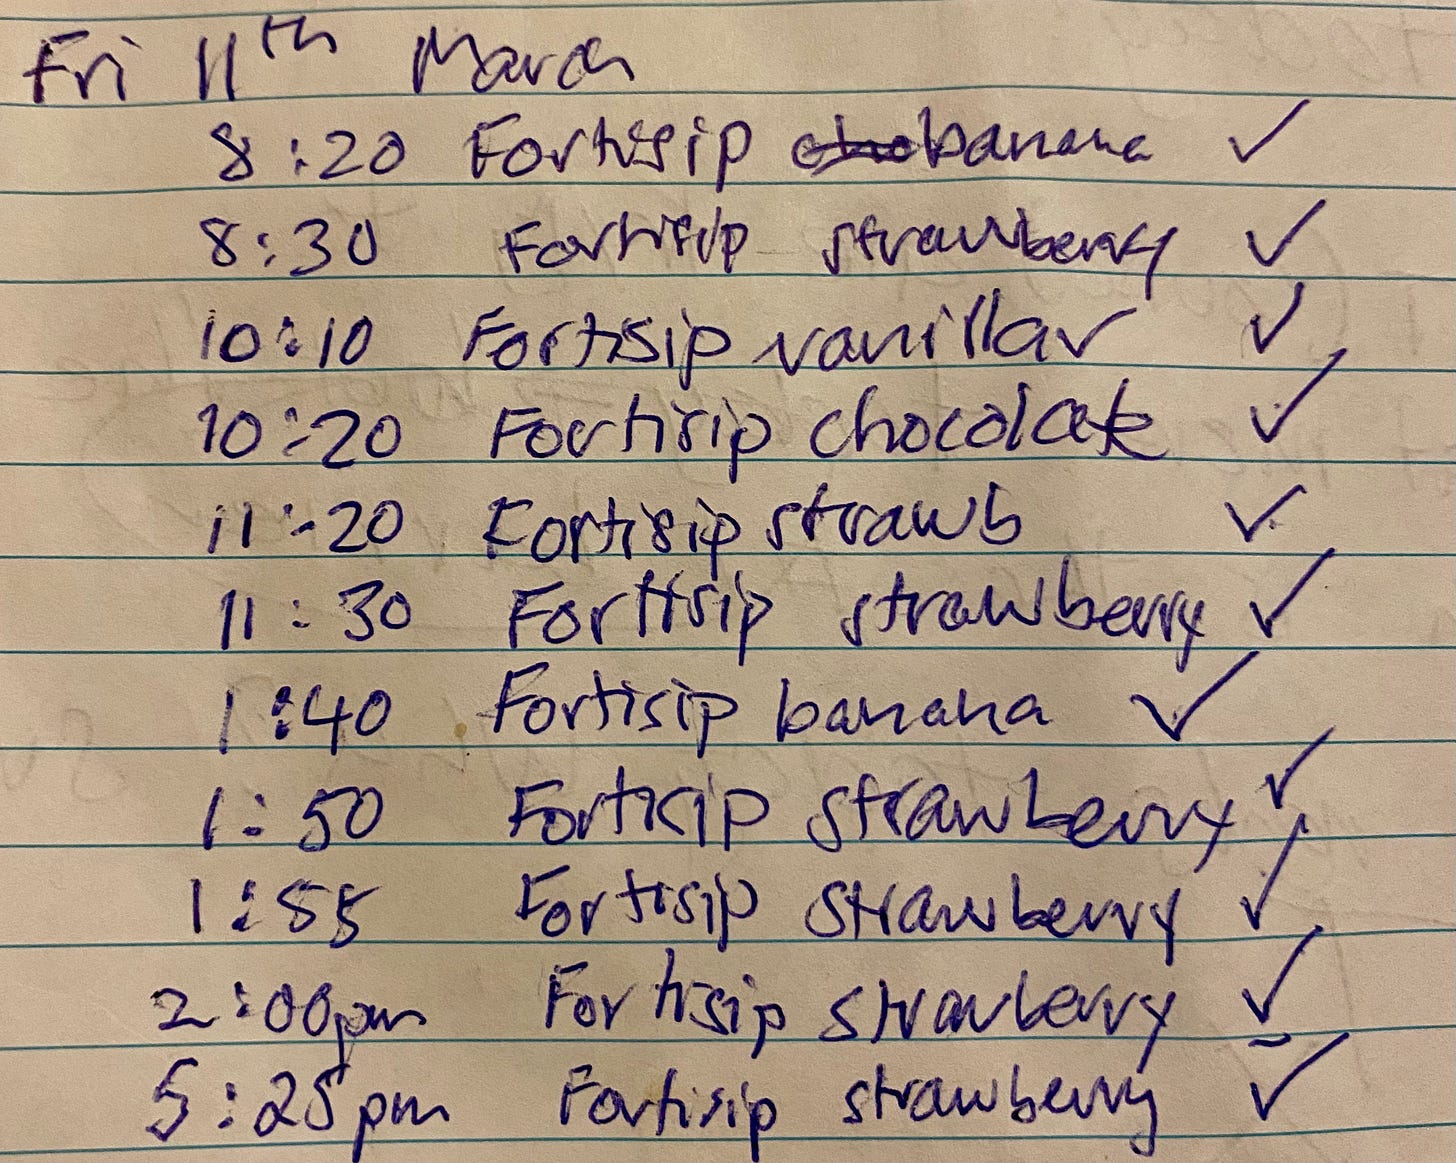 Fri 11th March
8:20 Fortisip banana ✓
8:30 Fortisip strawberry ✓
10:10 Fortisip vanillar ✓
10:20 Fortisip chocolate ✓
11:20 Fortisip strawb ✓
11:30 Fortisip strawberry ✓
1:40 Fortisip banana ✓
1:50 Fortisip strawberry ✓
1:55 Fortisip strawberry ✓
2:00pm Fortisip strawberry ✓
5:25pm Fortisip strawberry ✓